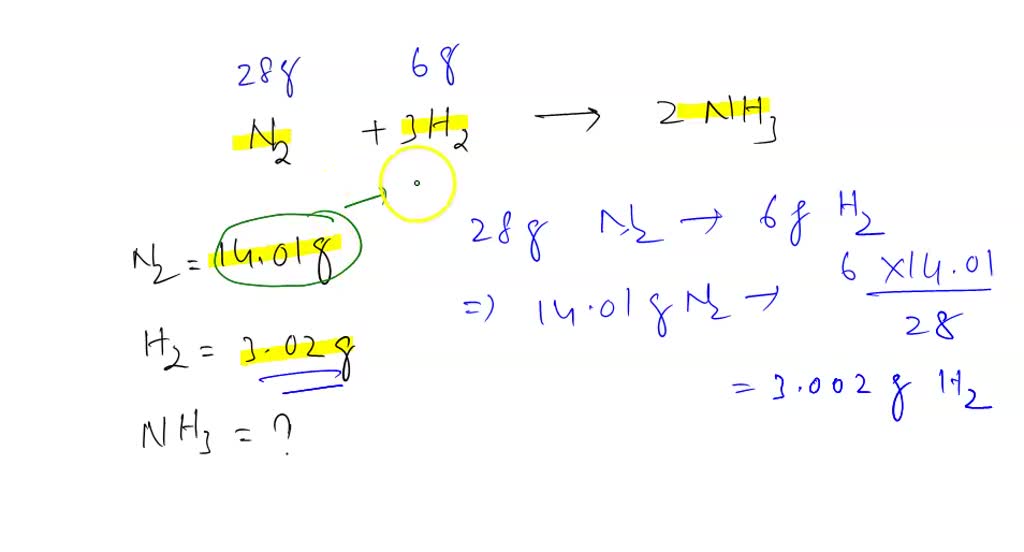 28g 6g
N₂ + 3H₂ → 2 NH₃
N₂ = 14.01g
H₂ = 3.02g
NH₃ = ?
28g N₂ → 6g H₂
=) 14.01g N₂ → 6 × 14.01
28
= 3.002 g H₂